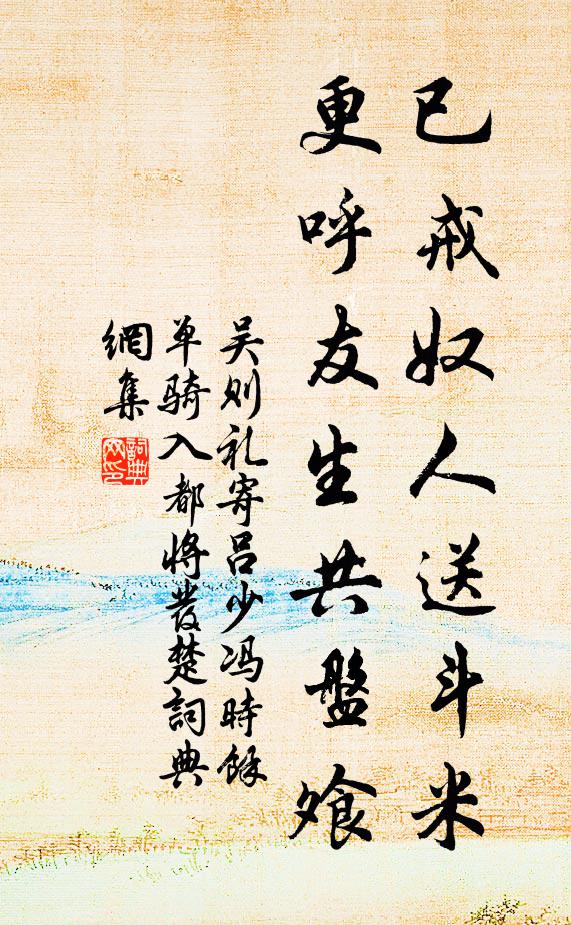 已戒奴人送斗米
更呼友生共盤飧
吴则礼寄吕少冯時馀
单骑入都将發楚詞典
網集
詞典
网印